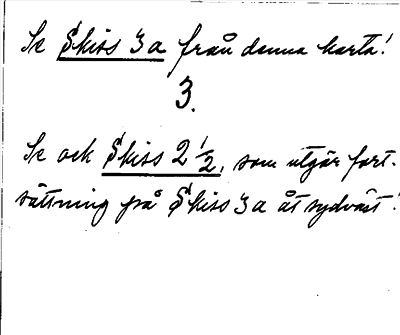 Se Skiss 3a från denna karta!
3.
Se och Skiss 2 1/2, som utgör fort-
sättning på Skiss 3a åt sydväst!